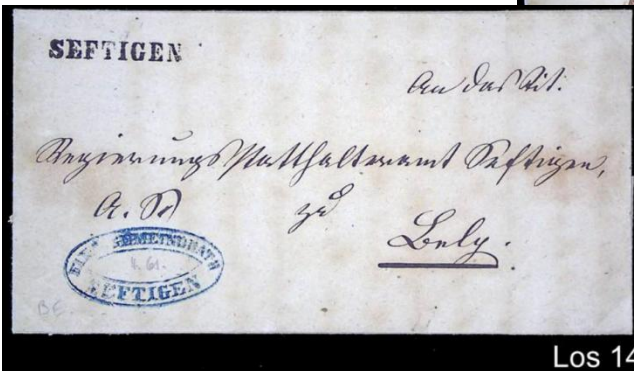 SEFTIGEN
An das Tit.
Regierungsstatthalteramt Seftigen,
A. S.
zu
Belp.
EINW. GEMEINDRATH
8.61.
SEFTIGEN
BE.
Los 14